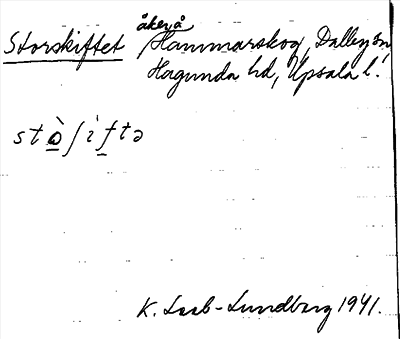 Storskiftet åker å Hammarskog, Dalby sn,
Hagunda hd, Upsala l.
stɷ̀ʃìftə
K. Laab-Lundberg 1941.